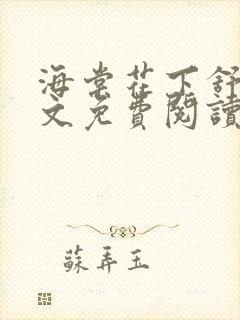 海棠花下舒
文免費閱讀
蘇弄玉